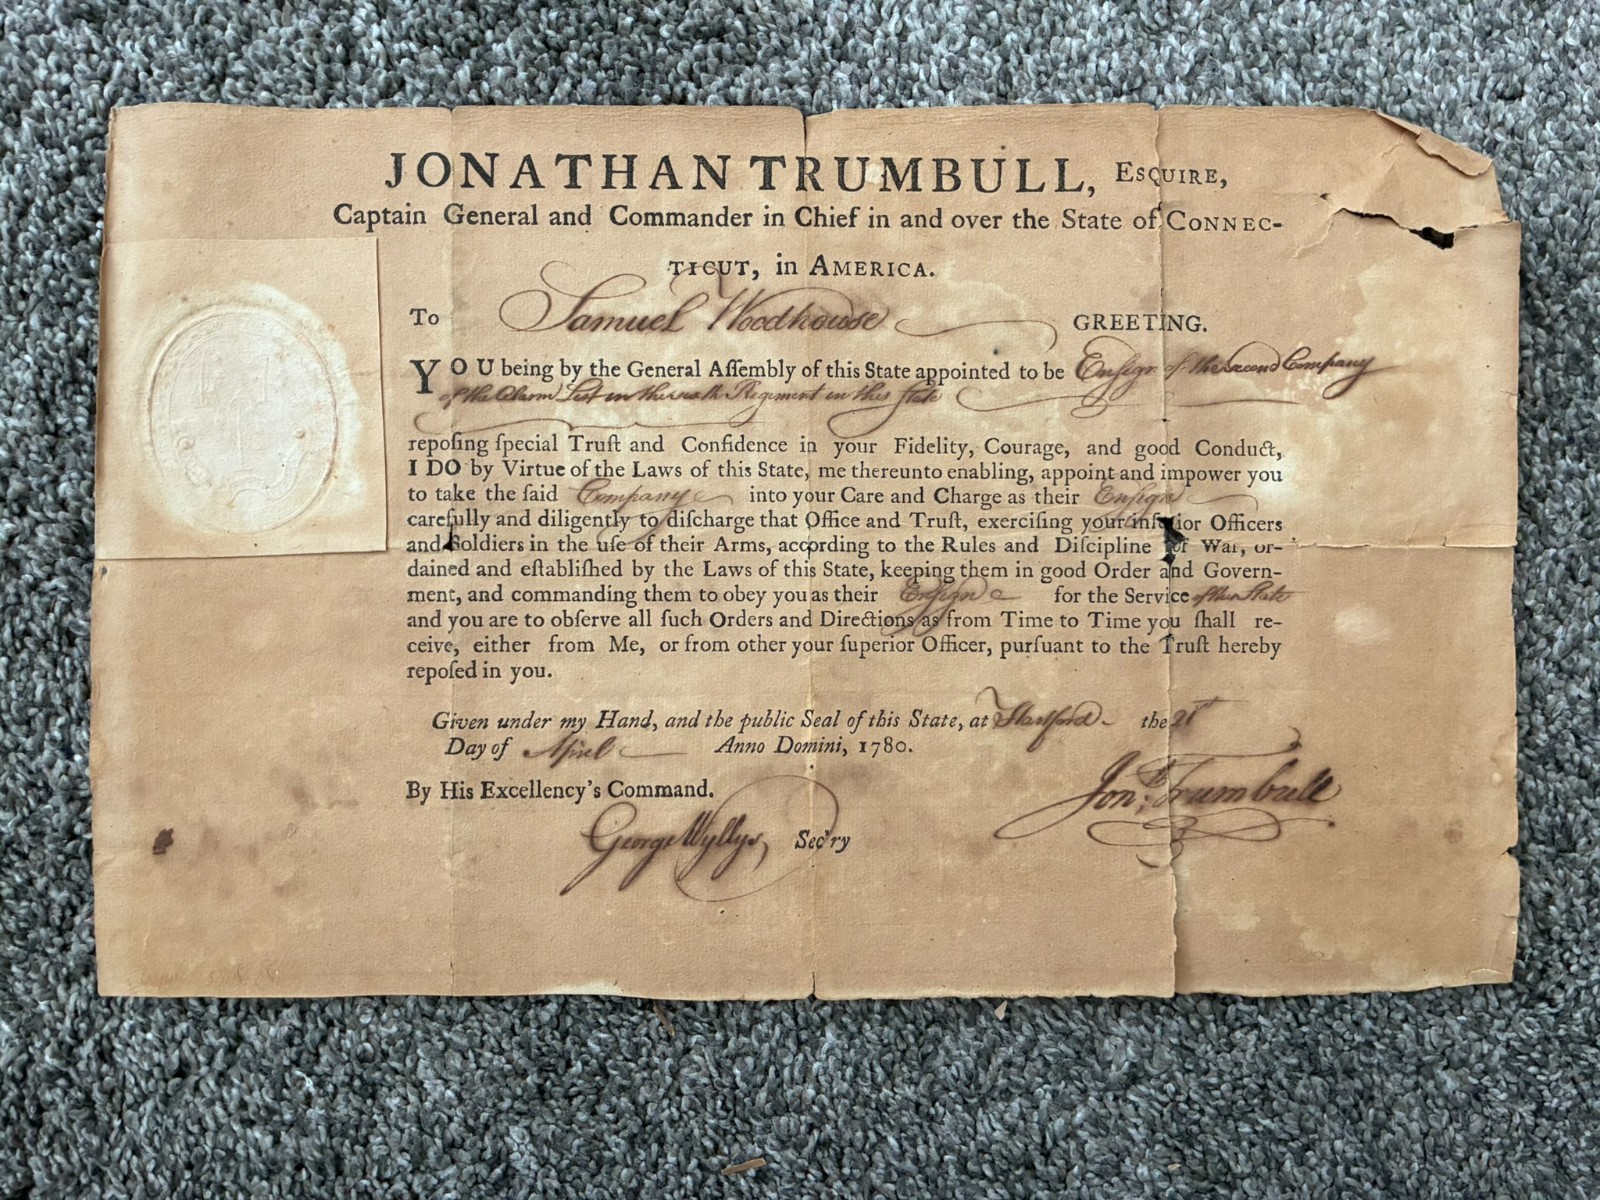 JONATHAN TRUMBULL, ESQUIRE,
Captain General and Commander in Chief in and over the State of CONNEC-
TICUT, in AMERICA.
To Samuel Woodhouse GREETING.
YOU being by the General Aſſembly of this State appointed to be Enſign of the Second Company
of the Alarm List in the sixth Regiment in this State
repoſing ſpecial Truſt and Confidence in your Fidelity, Courage, and good Conduct,
I DO by Virtue of the Laws of this State, me thereunto enabling, appoint and impower you
to take the ſaid Company into your Care and Charge as their Enſign
carefully and diligently to diſcharge that Office and Truſt, exerciſing your inferior Officers
and Soldiers in the uſe of their Arms, according to the Rules and Diſcipline of War, or-
dained and eſtabliſhed by the Laws of this State, keeping them in good Order and Govern-
ment, and commanding them to obey you as their Enſign for the Service of this State
and you are to obſerve all ſuch Orders and Directions as from Time to Time you ſhall re-
ceive, either from Me, or from other your ſuperior Officer, purſuant to the Truſt hereby
repoſed in you.
Given under my Hand, and the public Seal of this State, at Hartford the 21st
Day of April Anno Domini, 1780.
By His Excellency's Command.
Jonth Trumbull
George Wyllys, Sec'ry